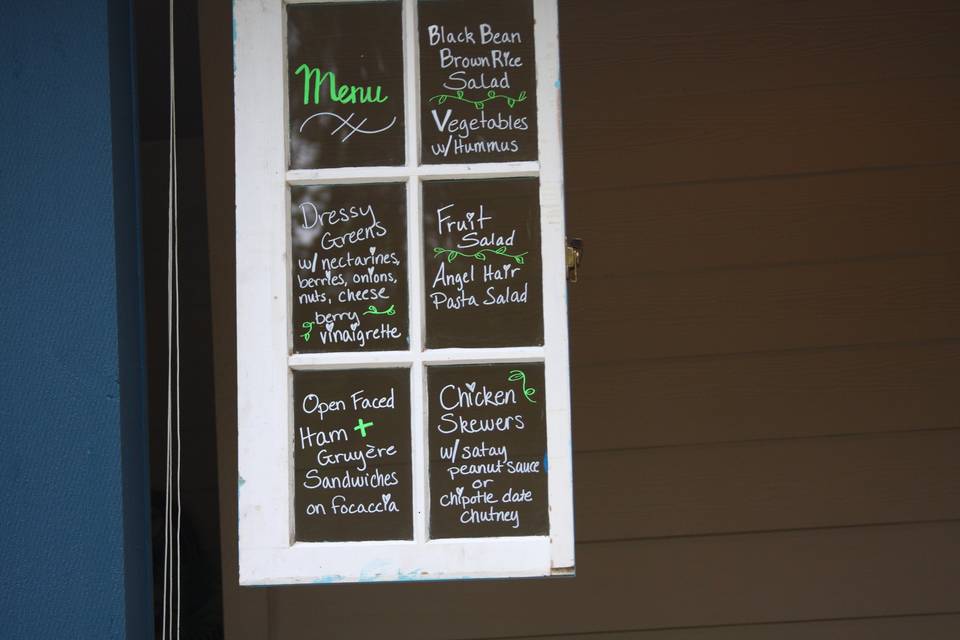 Menu
Black Bean
Brown Rice
Salad
Vegetables
w/Hummus
Dressy
Greens
w/ nectarines,
berries, onions,
nuts, cheese
berry
vinaigrette
Fruit
Salad
Angel Hair
Pasta Salad
Open Faced
Ham +
Gruyère
Sandwiches
on focaccia
Chicken
Skewers
w/ satay
peanut sauce
or
chipotle date
chutney